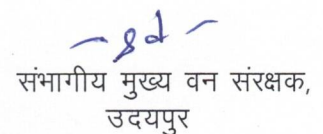 -sd-
संभागीय मुख्य वन संरक्षक,
उदयपुर